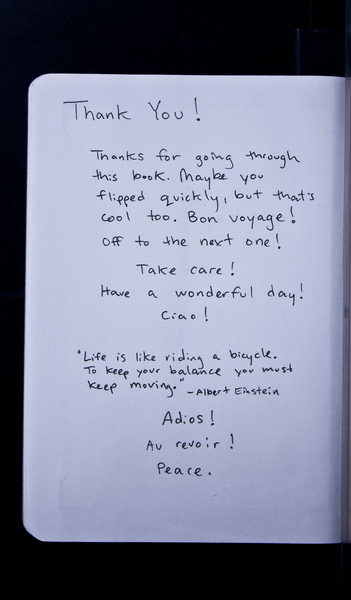 Thank You!
Thanks for going through
this book. Maybe you
flipped quickly, but that's
cool too. Bon voyage!
Off to the next one!
Take care!
Have a wonderful day!
Ciao!
"Life is like riding a bicycle.
To keep your balance you must
keep moving." - Albert Einstein
Adios!
Au revoir!
Peace.